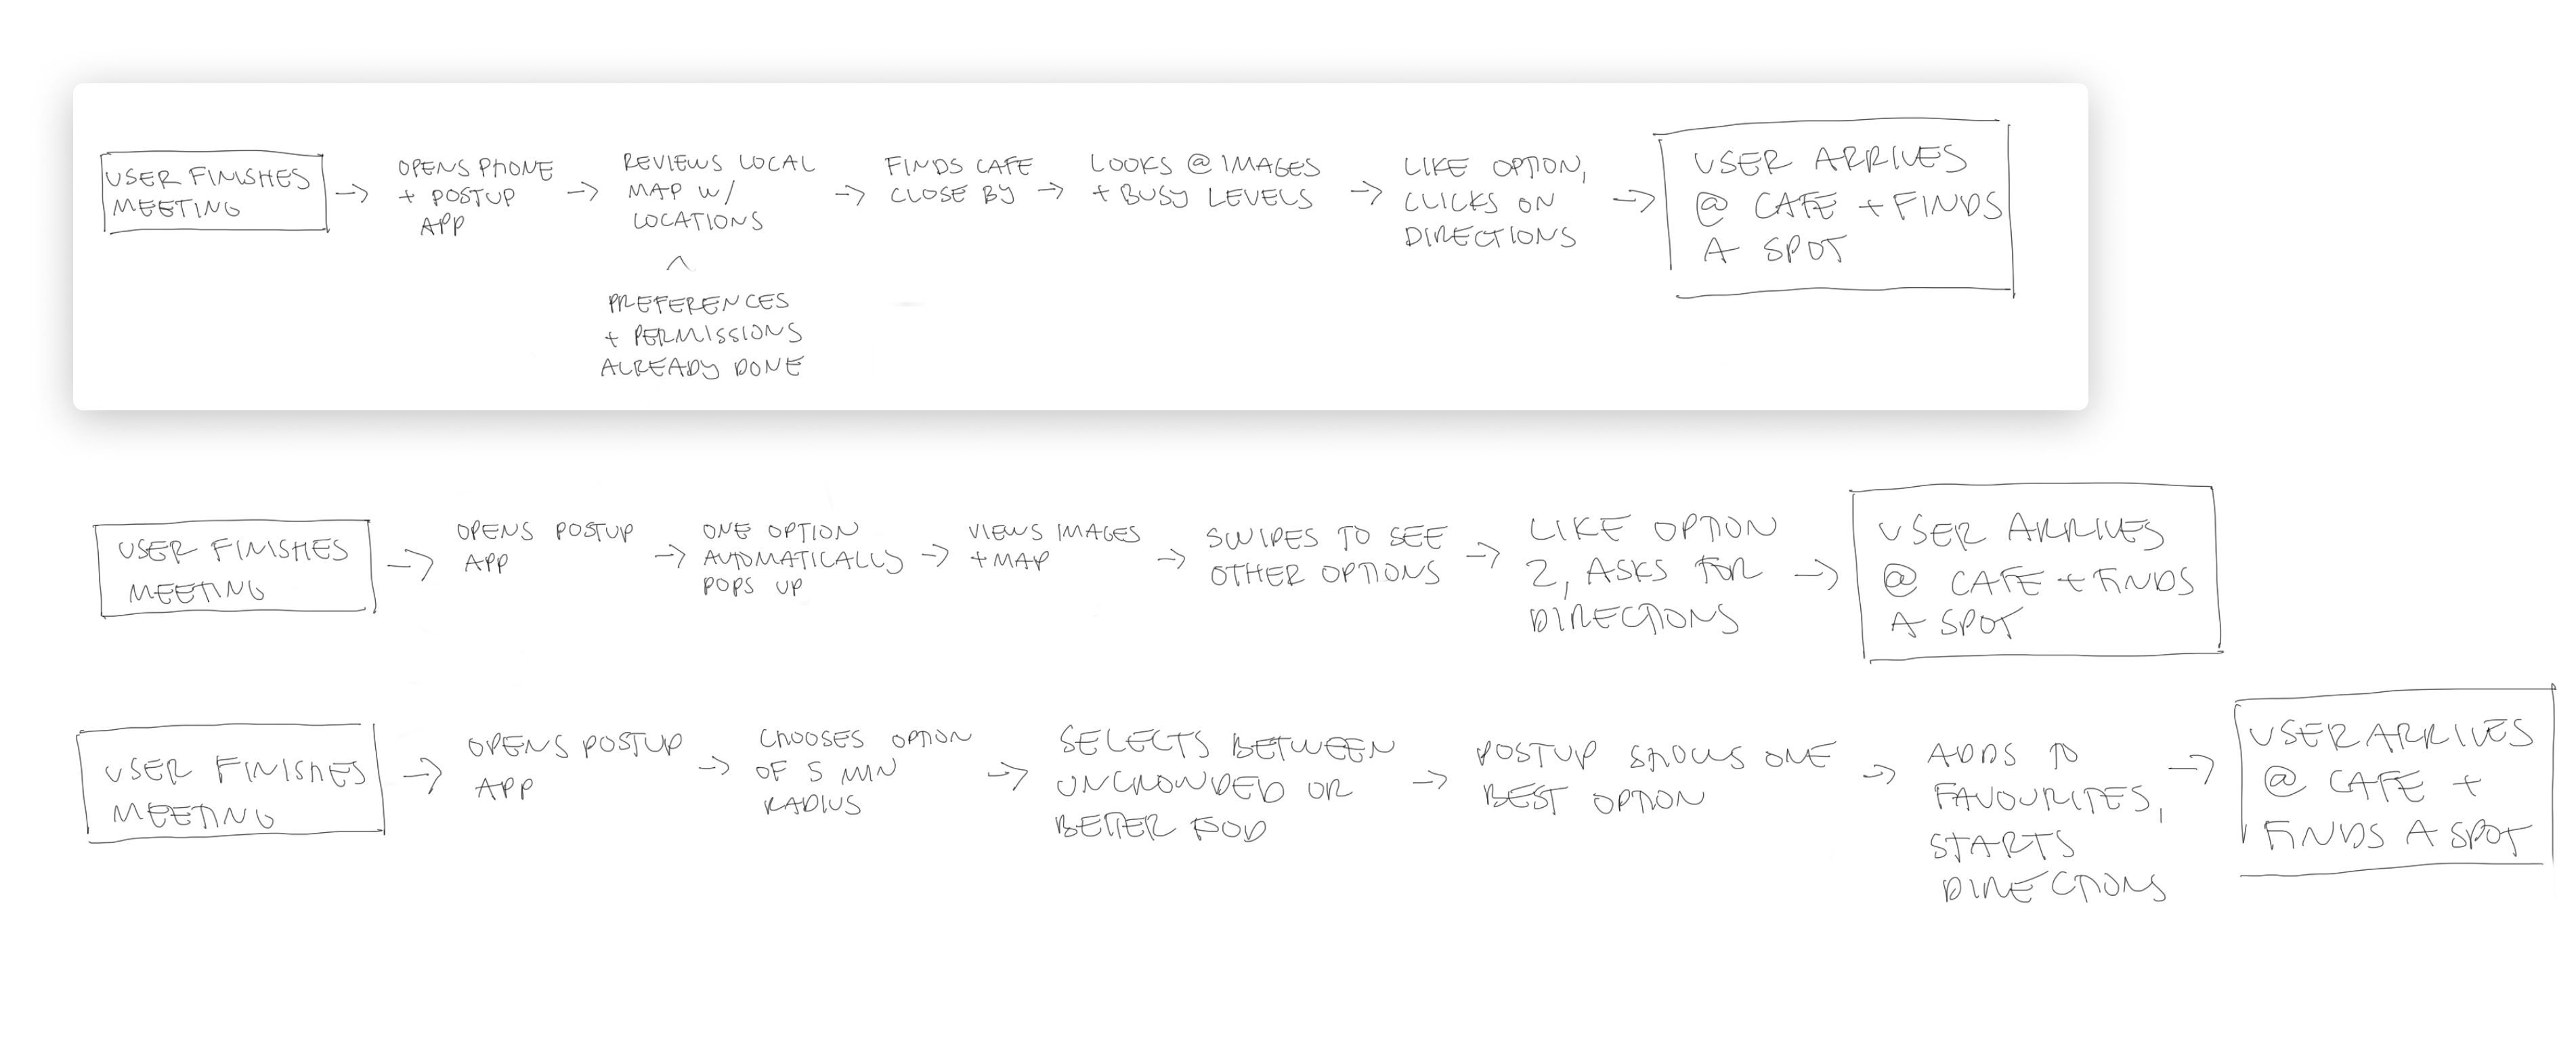 USER FINISHES
MEETING
OPENS PHONE
+ POSTUP
APP
REVIEWS LOCAL
MAP W/
LOCATIONS
PREFERENCES
+ PERMISSIONS
ALREADY DONE
FINDS CAFE
CLOSE BY
LOOKS @ IMAGES
+ BUSY LEVELS
LIKE OPTION,
CLICKS ON
DIRECTIONS
USER ARRIVES
@ CAFE + FINDS
A SPOT
USER FINISHES
MEETING
OPENS POSTUP
APP
ONE OPTION
AUTOMATICALLY
POPS UP
VIEWS IMAGES
+ MAP
SWIPES TO SEE
OTHER OPTIONS
LIKE OPTION
2, ASKS FOR
DIRECTIONS
USER ARRIVES
@ CAFE + FINDS
A SPOT
USER FINISHES
MEETING
OPENS POSTUP
APP
CHOOSES OPTION
OF 5 MIN
RADIUS
SELECTS BETWEEN
UNCROWDED OR
BETTER FOOD
POSTUP SHOWS ONE
BEST OPTION
ADDS TO
FAVOURITES,
STARTS
DIRECTIONS
USER ARRIVES
@ CAFE +
FINDS A SPOT